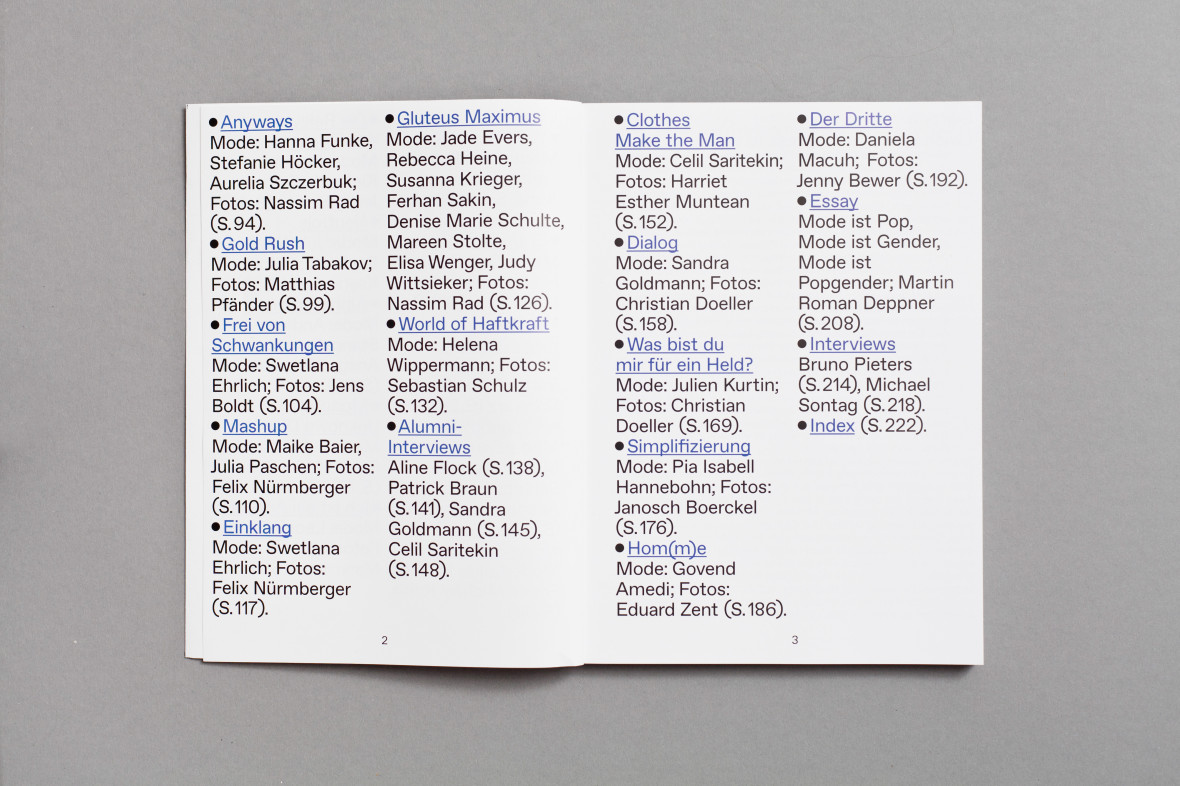 ● Anyways
Mode: Hanna Funke,
Stefanie Höcker,
Aurelia Szczerbuk;
Fotos: Nassim Rad
(S. 94).
● Gold Rush
Mode: Julia Tabakov;
Fotos: Matthias
Pfänder (S. 99).
● Frei von
Schwankungen
Mode: Swetlana
Ehrlich; Fotos: Jens
Boldt (S. 104).
● Mashup
Mode: Maike Baier,
Julia Paschen; Fotos:
Felix Nürmberger
(S. 110).
● Einklang
Mode: Swetlana
Ehrlich; Fotos:
Felix Nürmberger
(S. 117).
● Gluteus Maximus
Mode: Jade Evers,
Rebecca Heine,
Susanna Krieger,
Ferhan Sakin,
Denise Marie Schulte,
Mareen Stolte,
Elisa Wenger, Judy
Wittsieker; Fotos:
Nassim Rad (S. 126).
● World of Haftkraft
Mode: Helena
Wippermann; Fotos:
Sebastian Schulz
(S. 132).
● Alumni-
Interviews
Aline Flock (S. 138),
Patrick Braun
(S. 141), Sandra
Goldmann (S. 145),
Celil Saritekin
(S. 148).
2
● Clothes
Make the Man
Mode: Celil Saritekin;
Fotos: Harriet
Esther Muntean
(S. 152).
● Dialog
Mode: Sandra
Goldmann; Fotos:
Christian Doeller
(S. 158).
● Was bist du
mir für ein Held?
Mode: Julien Kurtin;
Fotos: Christian
Doeller (S. 169).
● Simplifizierung
Mode: Pia Isabell
Hannebohn; Fotos:
Janosch Boerckel
(S. 176).
● Hom(m)e
Mode: Govend
Amedi; Fotos:
Eduard Zent (S. 186).
● Der Dritte
Mode: Daniela
Macuh; Fotos:
Jenny Bewer (S. 192).
● Essay
Mode ist Pop,
Mode ist Gender,
Mode ist
Popgender; Martin
Roman Deppner
(S. 208).
● Interviews
Bruno Pieters
(S. 214), Michael
Sontag (S. 218).
● Index (S. 222).
3